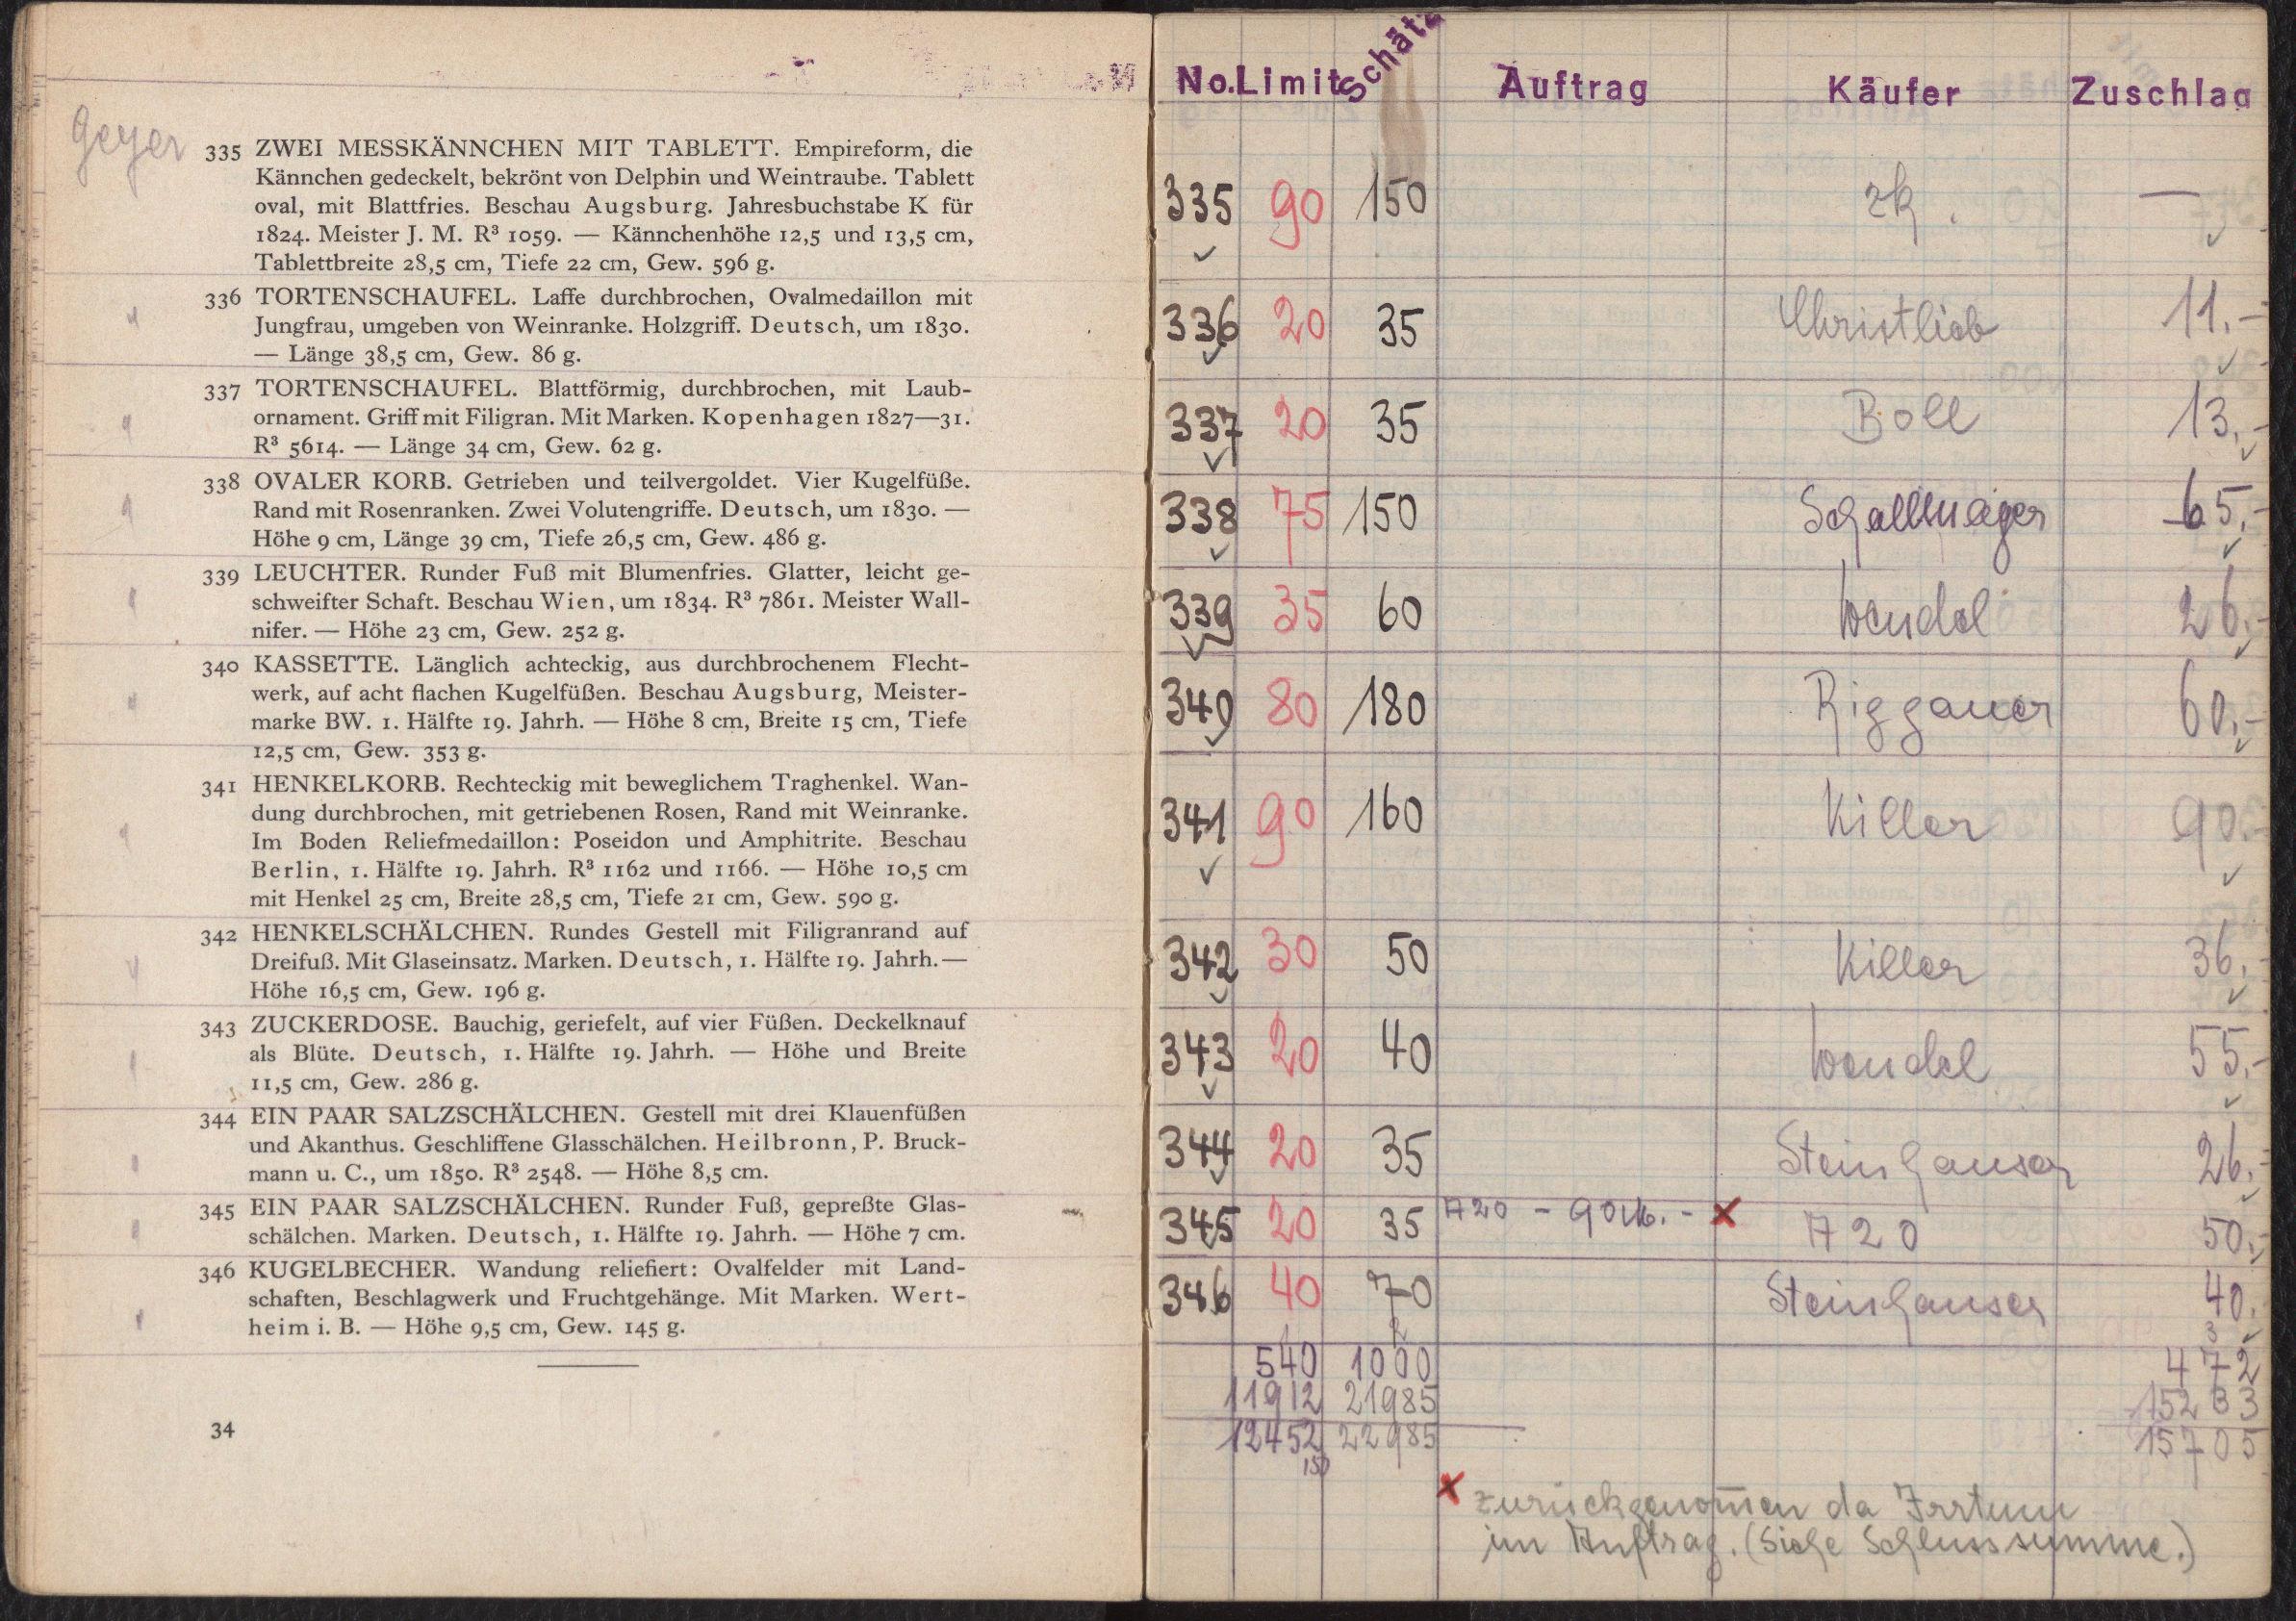 Geyer
335 ZWEI MESSKÄNNCHEN MIT TABLETT. Empireform, die
Kännchen gedeckelt, bekrönt von Delphin und Weintraube. Tablett
oval, mit Blattfries. Beschau Augsburg. Jahresbuchstabe K für
1824. Meister J. M. R³ 1059. — Kännchenhöhe 12,5 und 13,5 cm,
Tablettbreite 28,5 cm, Tiefe 22 cm, Gew. 596 g.
336 TORTENSCHAUFEL. Laffe durchbrochen, Ovalmedaillon mit
Jungfrau, umgeben von Weinranke. Holzgriff. Deutsch, um 1830.
— Länge 38,5 cm, Gew. 86 g.
337 TORTENSCHAUFEL. Blattförmig, durchbrochen, mit Laub-
ornament. Griff mit Filigran. Mit Marken. Kopenhagen 1827—31.
R³ 5614. — Länge 34 cm, Gew. 62 g.
338 OVALER KORB. Getrieben und teilvergoldet. Vier Kugelfüße.
Rand mit Rosenranken. Zwei Volutengriffe. Deutsch, um 1830. —
Höhe 9 cm, Länge 39 cm, Tiefe 26,5 cm, Gew. 486 g.
339 LEUCHTER. Runder Fuß mit Blumenfries. Glatter, leicht ge-
schweifter Schaft. Beschau Wien, um 1834. R³ 7861. Meister Wall-
nifer. — Höhe 23 cm, Gew. 252 g.
340 KASSETTE. Länglich achteckig, aus durchbrochenem Flecht-
werk, auf acht flachen Kugelfüßen. Beschau Augsburg, Meister-
marke BW. 1. Hälfte 19. Jahrh. — Höhe 8 cm, Breite 15 cm, Tiefe
12,5 cm, Gew. 353 g.
341 HENKELKORB. Rechteckig mit beweglichem Traghenkel. Wan-
dung durchbrochen, mit getriebenen Rosen, Rand mit Weinranke.
Im Boden Reliefmedaillon: Poseidon und Amphitrite. Beschau
Berlin, 1. Hälfte 19. Jahrh. R³ 1162 und 1166. — Höhe 10,5 cm
mit Henkel 25 cm, Breite 28,5 cm, Tiefe 21 cm, Gew. 590 g.
342 HENKELSCHÄLCHEN. Rundes Gestell mit Filigranrand auf
Dreifuß. Mit Glaseinsatz. Marken. Deutsch, 1. Hälfte 19. Jahrh. —
Höhe 16,5 cm, Gew. 196 g.
343 ZUCKERDOSE. Bauchig, geriefelt, auf vier Füßen. Deckelknauf
als Blüte. Deutsch, 1. Hälfte 19. Jahrh. — Höhe und Breite
11,5 cm, Gew. 286 g.
344 EIN PAAR SALZSCHÄLCHEN. Gestell mit drei Klauenfüßen
und Akanthus. Geschliffene Glasschälchen. Heilbronn, P. Bruck-
mann u. C., um 1850. R³ 2548. — Höhe 8,5 cm.
345 EIN PAAR SALZSCHÄLCHEN. Runder Fuß, gepreßte Glas-
schälchen. Marken. Deutsch, 1. Hälfte 19. Jahrh. — Höhe 7 cm.
346 KUGELBECHER. Wandung reliefiert: Ovalfelder mit Land-
schaften, Beschlagwerk und Fruchtgehänge. Mit Marken. Wert-
heim i. B. — Höhe 9,5 cm, Gew. 145 g.
34
No. Limit Schätz Auftrag Käufer Zuschlag
335 90 150 zk. —
336 20 35 Christlieb 11.-
337 20 35 Boll 13.-
338 75 150 Schallmeiger 65.-
339 35 60 Wendel 26.-
340 80 180 Riggauer 60.-
341 90 160 Killer 90.-
342 30 50 Killer 36.-
343 20 40 Wendel 55.-
344 20 35 Steinhauser 26.-
345 20 35 A20 - 90M.- x A20 50.-
346 40 70 Steinhauser 40.-
540 1000 472
11912 21985 15233
12452 22985 15705
150
x zurückgenom̄en da Irrtum
im Auftrag. (Siehe Schlusssumme.)